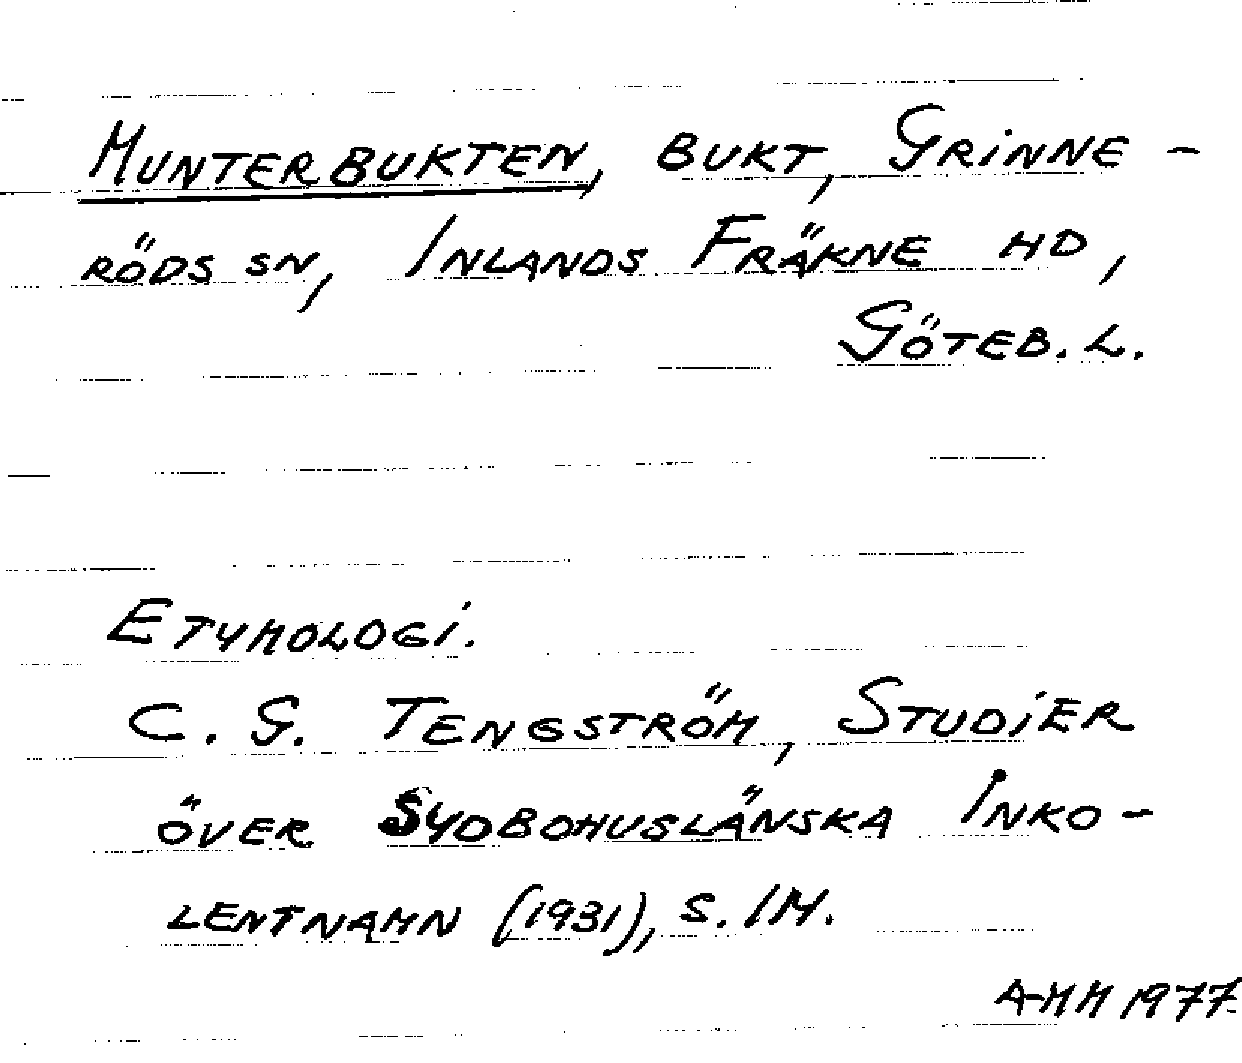 MUNTERBUKTEN, BUKT, GRINNE-
RÖDS SN, INLANDS FRÄKNE HD,
GÖTEB. L.
ETYMOLOGI.
C. G. TENGSTRÖM, STUDIER
ÖVER SYDBOHUSLÄNSKA INKO-
LENTNAMN (1931), S. 114.
A-MM 1977